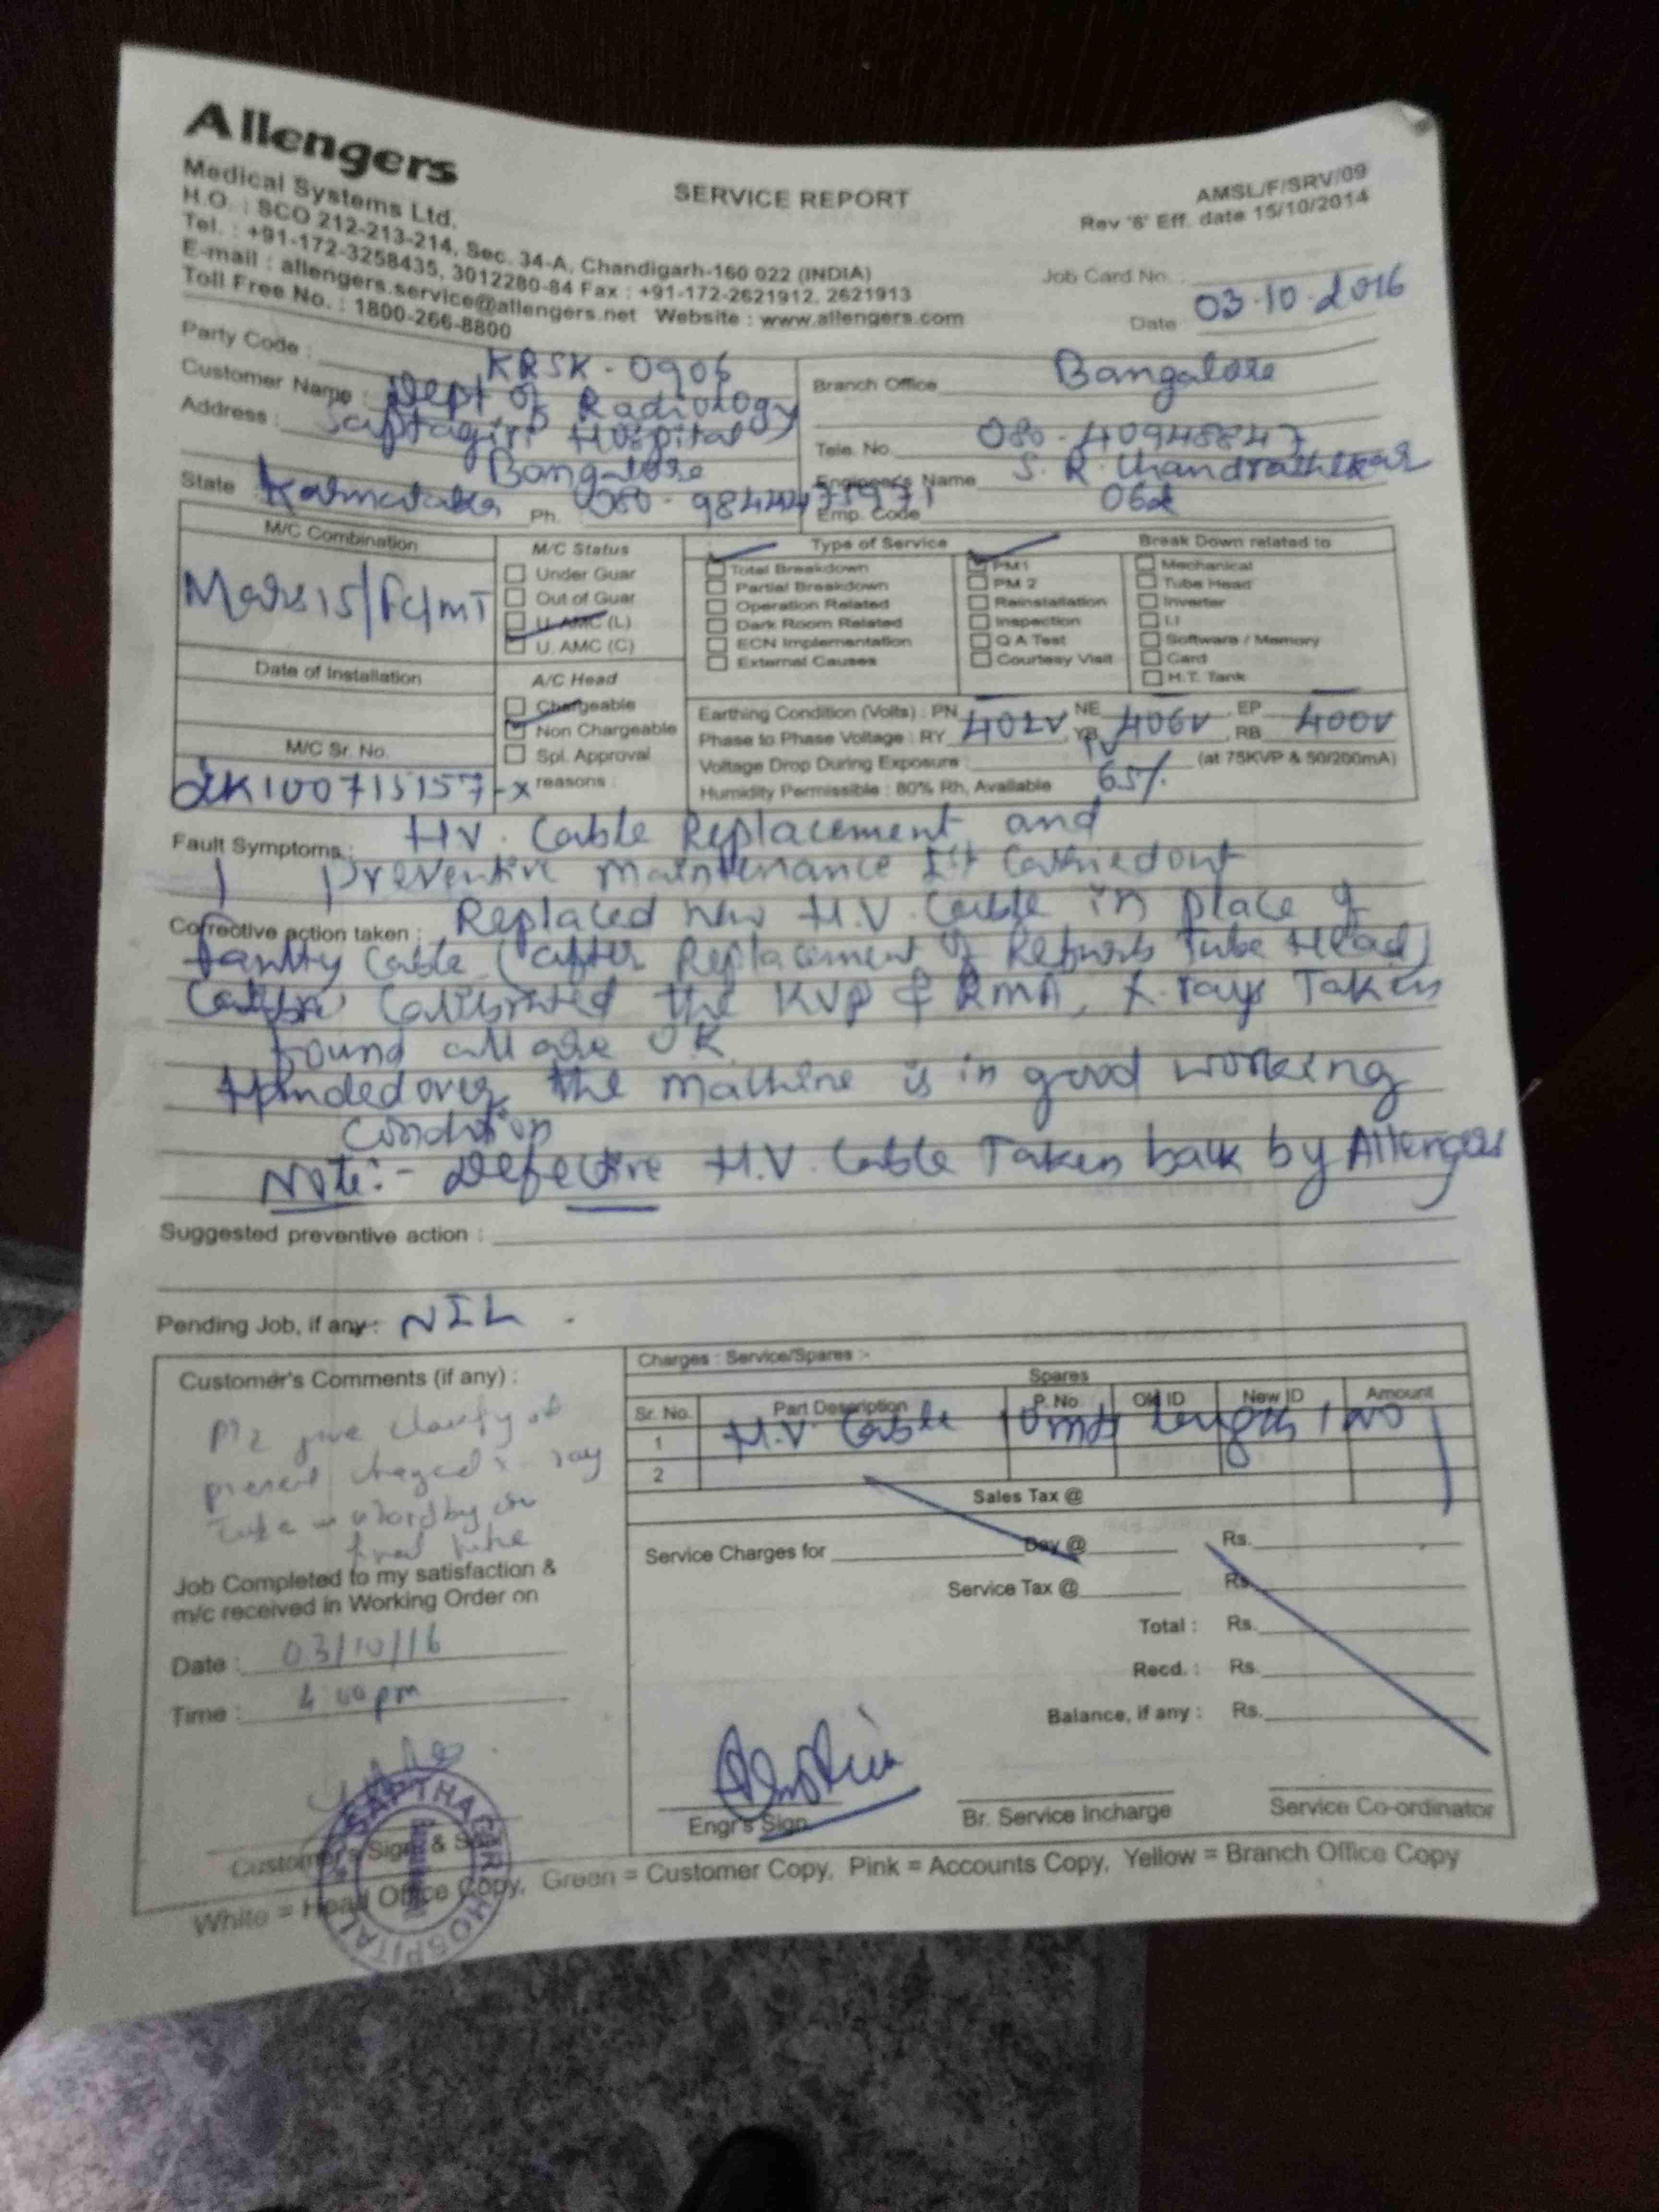 Allengers
Medical Systems Ltd.
H.O. : SCO 212-213-214, Sec. 34-A, Chandigarh-160 022 (INDIA)
Tel. : +91-172-3258435, 3012280-84 Fax : +91-172-2621912, 2621913
E-mail : allengers.service@allengers.net Website : www.allengers.com
Toll Free No. : 1800-266-8800
SERVICE REPORT
AMSL/F/SRV/09
Rev '8' Eff. date 15/10/2014
Job Card No. :
Date 03-10-2016
Party Code : KRSK-0906
Customer Name : Dept of Radiology
Address : Saptagiri Hospital
Bangalore
State Karnataka Ph. 080-
Branch Office Bangalore
Tele. No. 080-40948847
Engineer's Name S. R. Chandrashekar
Emp. Code 062
M/C Combination
Mars15/Fc/mT
Date of Installation
M/C Sr. No.
2K100715157-x
M/C Status
Under Guar
Out of Guar
U. AMC (L)
U. AMC (C)
A/C Head
Chargeable
Non Chargeable
Spl. Approval
reasons :
Type of Service
Total Breakdown
Partial Breakdown
Operation Related
Dark Room Related
ECN Implementation
External Causes
PM1
PM 2
Reinstallation
Inspection
Q A Test
Courtesy Visit
Break Down related to
Mechanical
Tube Head
Inverter
I.I
Software / Memory
Card
H.T. Tank
Earthing Condition (Volts) : PN — , NE — , EP —
Phase to Phase Voltage : RY 402V , YB 406V , RB 400V
Voltage Drop During Exposure : 1V (at 75KVP & 50/200mA)
Humidity Permissible : 80% Rh, Available 65%
Fault Symptoms : HV. Cable Replacement and
Preventive Maintenance Ist Carriedout
Corrective action taken : Replaced new H.V. Cable in place of
faulty Cable (after Replacement of Refurb Tube Head)
Calibrated the KVP & RMA, X-rays Taken
found all are OK.
Handedover the machine is in good working
Condition
Note:- Defective H.V. Cable Taken back by Allengers
Suggested preventive action :
Pending Job, if any : NIL .
Customer's Comments (if any) :
Plz give clarify of
present changed x-ray
tube
Job Completed to my satisfaction &
m/c received in Working Order on
Date : 03/10/16
Time : 4:00pm
Customer's Sign & Seal
SAPTHAGIRI HOSPITAL
Charges : Service/Spares :-
Spares
Sr. No. Part Description P. No Old ID New ID Amount
1 H.V. Cable 10mts Length 1 no
2
Sales Tax @
Service Charges for Day @ Rs.
Service Tax @ Rs.
Total : Rs.
Recd. : Rs.
Balance, if any : Rs.
Engr's Sign.
Br. Service Incharge
Service Co-ordinator
White = Head Office Copy, Green = Customer Copy, Pink = Accounts Copy, Yellow = Branch Office Copy